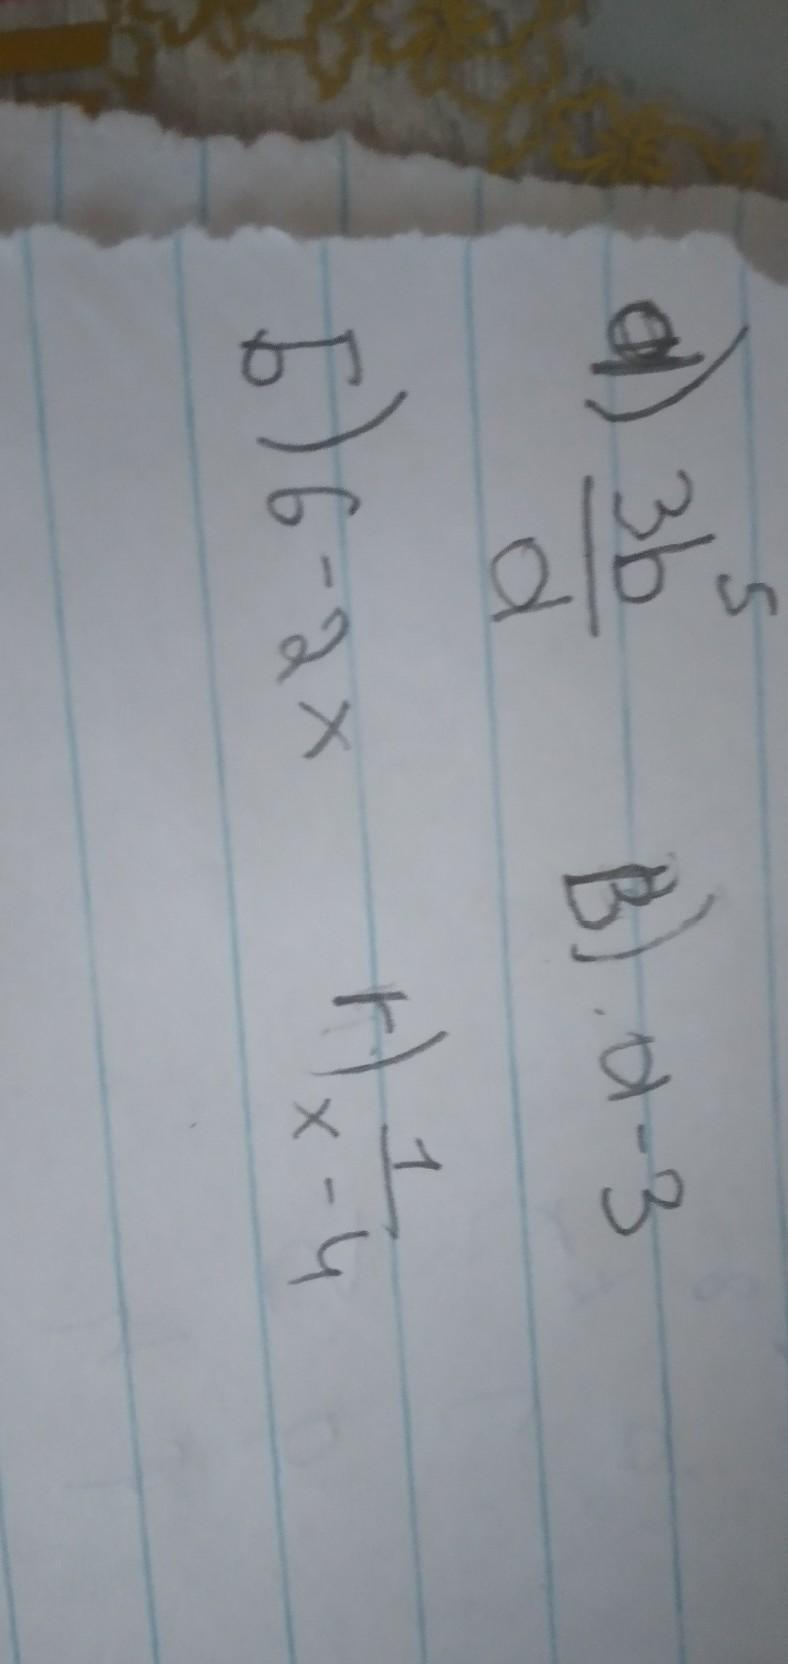 а) 3b⁵/a   В) a-3
Б) 6-2x   г) 1/x-4